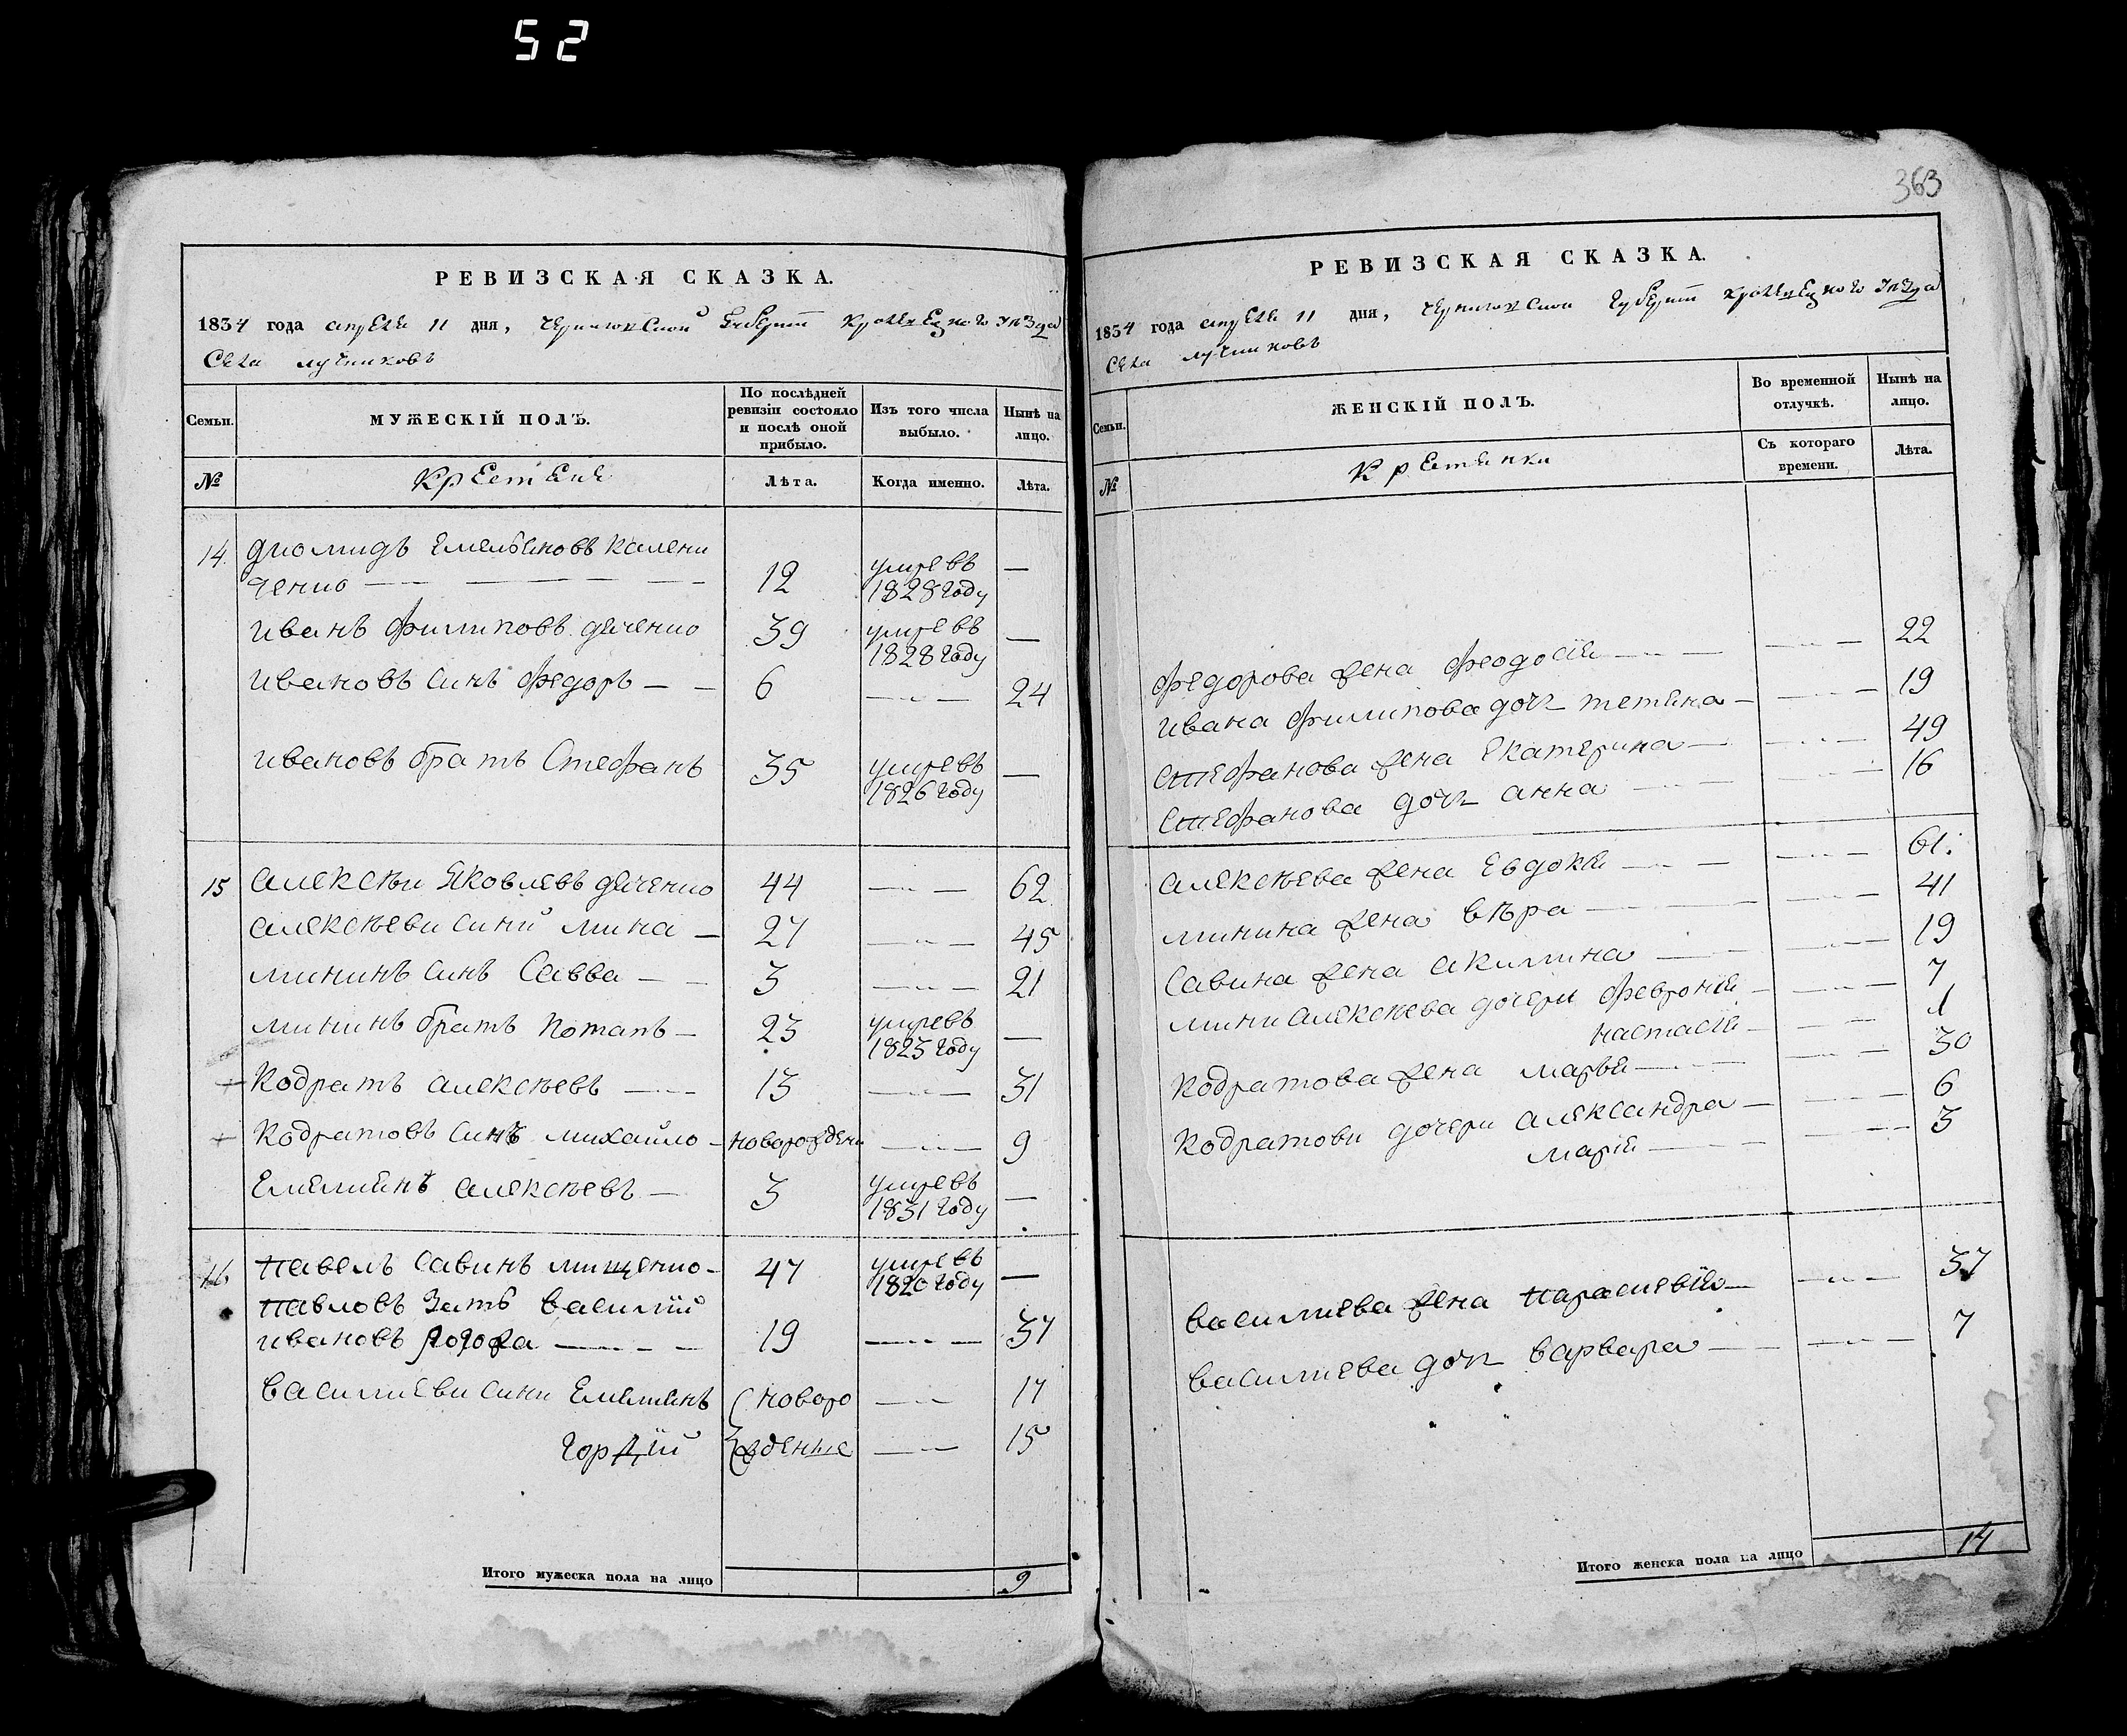 52
РЕВИЗСКАЯ СКАЗКА.
1834 года апреля 11 дня, Черниговской Губернии Кролевецкого уезда
Села лучников
Семьи.
МУЖЕСКІЙ ПОЛЪ.
По послѣдней ревизіи состояло и послѣ оной прибыло.
Изъ того числа выбыло.
Нынѣ на лицо.
№
Крестяне
Лѣта.
Когда именно.
Лѣта.
14. Диомидъ Емельяновъ Калени
ченко — 12 умре въ 1828 году —
Иванъ Филиповъ дяченко 39 умре въ 1828 году —
Ивановъ синъ Федоръ — 6 — 24
Ивановъ братъ Стефанъ 35 умре въ 1826 году —
15 Алексѣй Яковлевъ дяченко 44 — 62
Алексѣеви сини Мина — 27 — 45
Мининъ синъ Савва — 3 — 21
Мининъ братъ Потапъ — 23 умре въ 1825 году —
+ Кодратъ Алексѣевъ — 13 — 31
+ Кодратовъ синъ Михайло — новорожден — 9
Емелиянъ Алексѣевъ — 3 умре въ 1831 году —
16 Павелъ Савинъ Мищенко — 47 умре въ 1820 году —
Павловъ Зять Василий
Ивановъ — 19 — 37
Василиеви сини Емелиянъ (новоро — 17
Гордій жденые — 15
Итого мужеска пола на лицо 9
363
РЕВИЗСКАЯ СКАЗКА.
1834 года апреля 11 дня, Черниговской Губернии Кролевецкого уезда
Села лучников
Семьи.
ЖЕНСКІЙ ПОЛЪ.
Во временной отлучкѣ.
Нынѣ на лицо.
№
Крестянки
Съ котораго времени.
Лѣта.
Федорова жена Феодосія — 22
Ивана Филипова доч Тетяна — 19
Стефанова жена Екатерина — 49
Стефанова доч Анна — 16
Алексѣева жена Евдокия — 61.
Минина жена Вѣра — 41
Савина жена Акилина — 19
Мини Алексѣева дочери Феврония — 7
Настасія — 1
Кодратова жена Марья — 30
Кодратови дочери Александра — 6
Марія — 3
Василиева жена Параскевія — 37
Василиева доч Варвара — 7
Итого женска пола на лицо 14